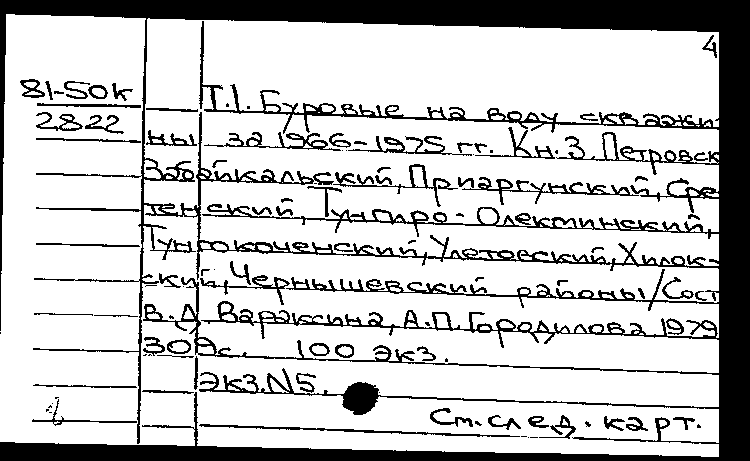 4
81-50к Т.1. Буровые на воду скважи-
2822 ны за 1966-1975 гг. Кн.3. Петровск
Забайкальский, Приаргунский, Сре-
тенский, Тунгиро-Олекминский,
Тунгокоченский, Улетовский, Хилок-
ский, Чернышевский районы/Сост
В.Д. Вараксина, А.П. Городилова 1979
309с. 100 экз.
Экз.N5.
См. след. карт.